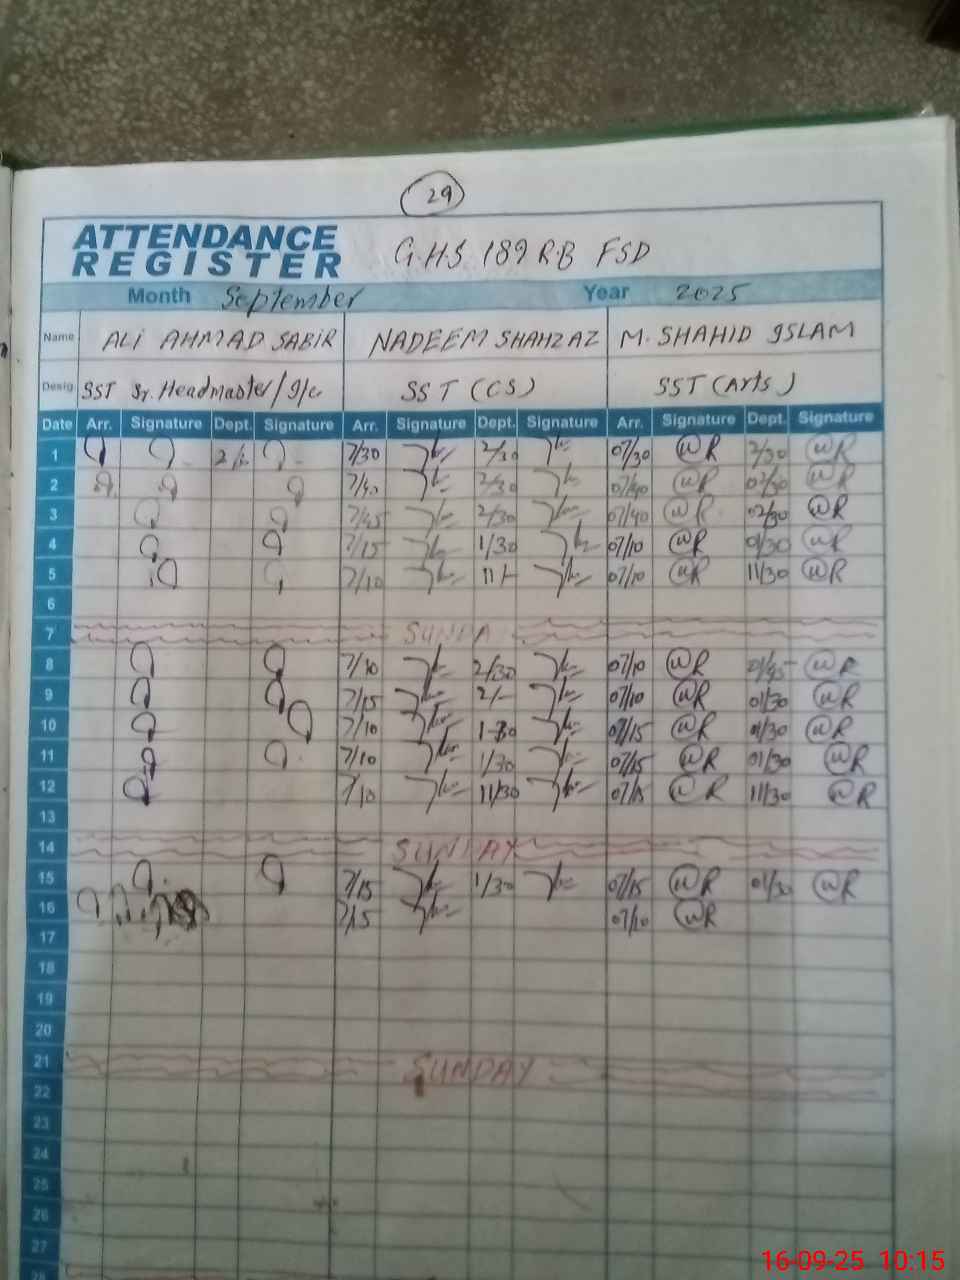 29
ATTENDANCE REGISTER G.H.S 189 R.B FSD
Month September Year 2025
Name ALI AHMAD SABIR NADEEM SHAHZAZ M. SHAHID ISLAM
Desig SST Sr. Headmaster/I/c SST (CS) SST (Arts)
Date Arr. Signature Dept. Signature Arr. Signature Dept. Signature Arr. Signature Dept. Signature
1 7/30 2/30 07/30 2/30
2 7/40 2/30 07/40 02/30
3 7/45 2/30 07/40 02/30
4 7/15 1/30 07/10 01/30
5 7/10 11/- 07/10 11/30
6
7 SUNDA
8 7/10 2/30 07/10 01/45
9 7/15 2/- 07/10 01/30
10 7/10 1-30 07/15 01/30
11 7/10 1/30 07/15 01/30
12 7/10 11/30 07/15 11/30
13
14 SUNDAY
15 7/15 1/30 07/15 01/30
16 7/15 07/10
17
18
19
20
21 SUNDAY
22
23
24
25
26
27
28
16-09-25 10:15